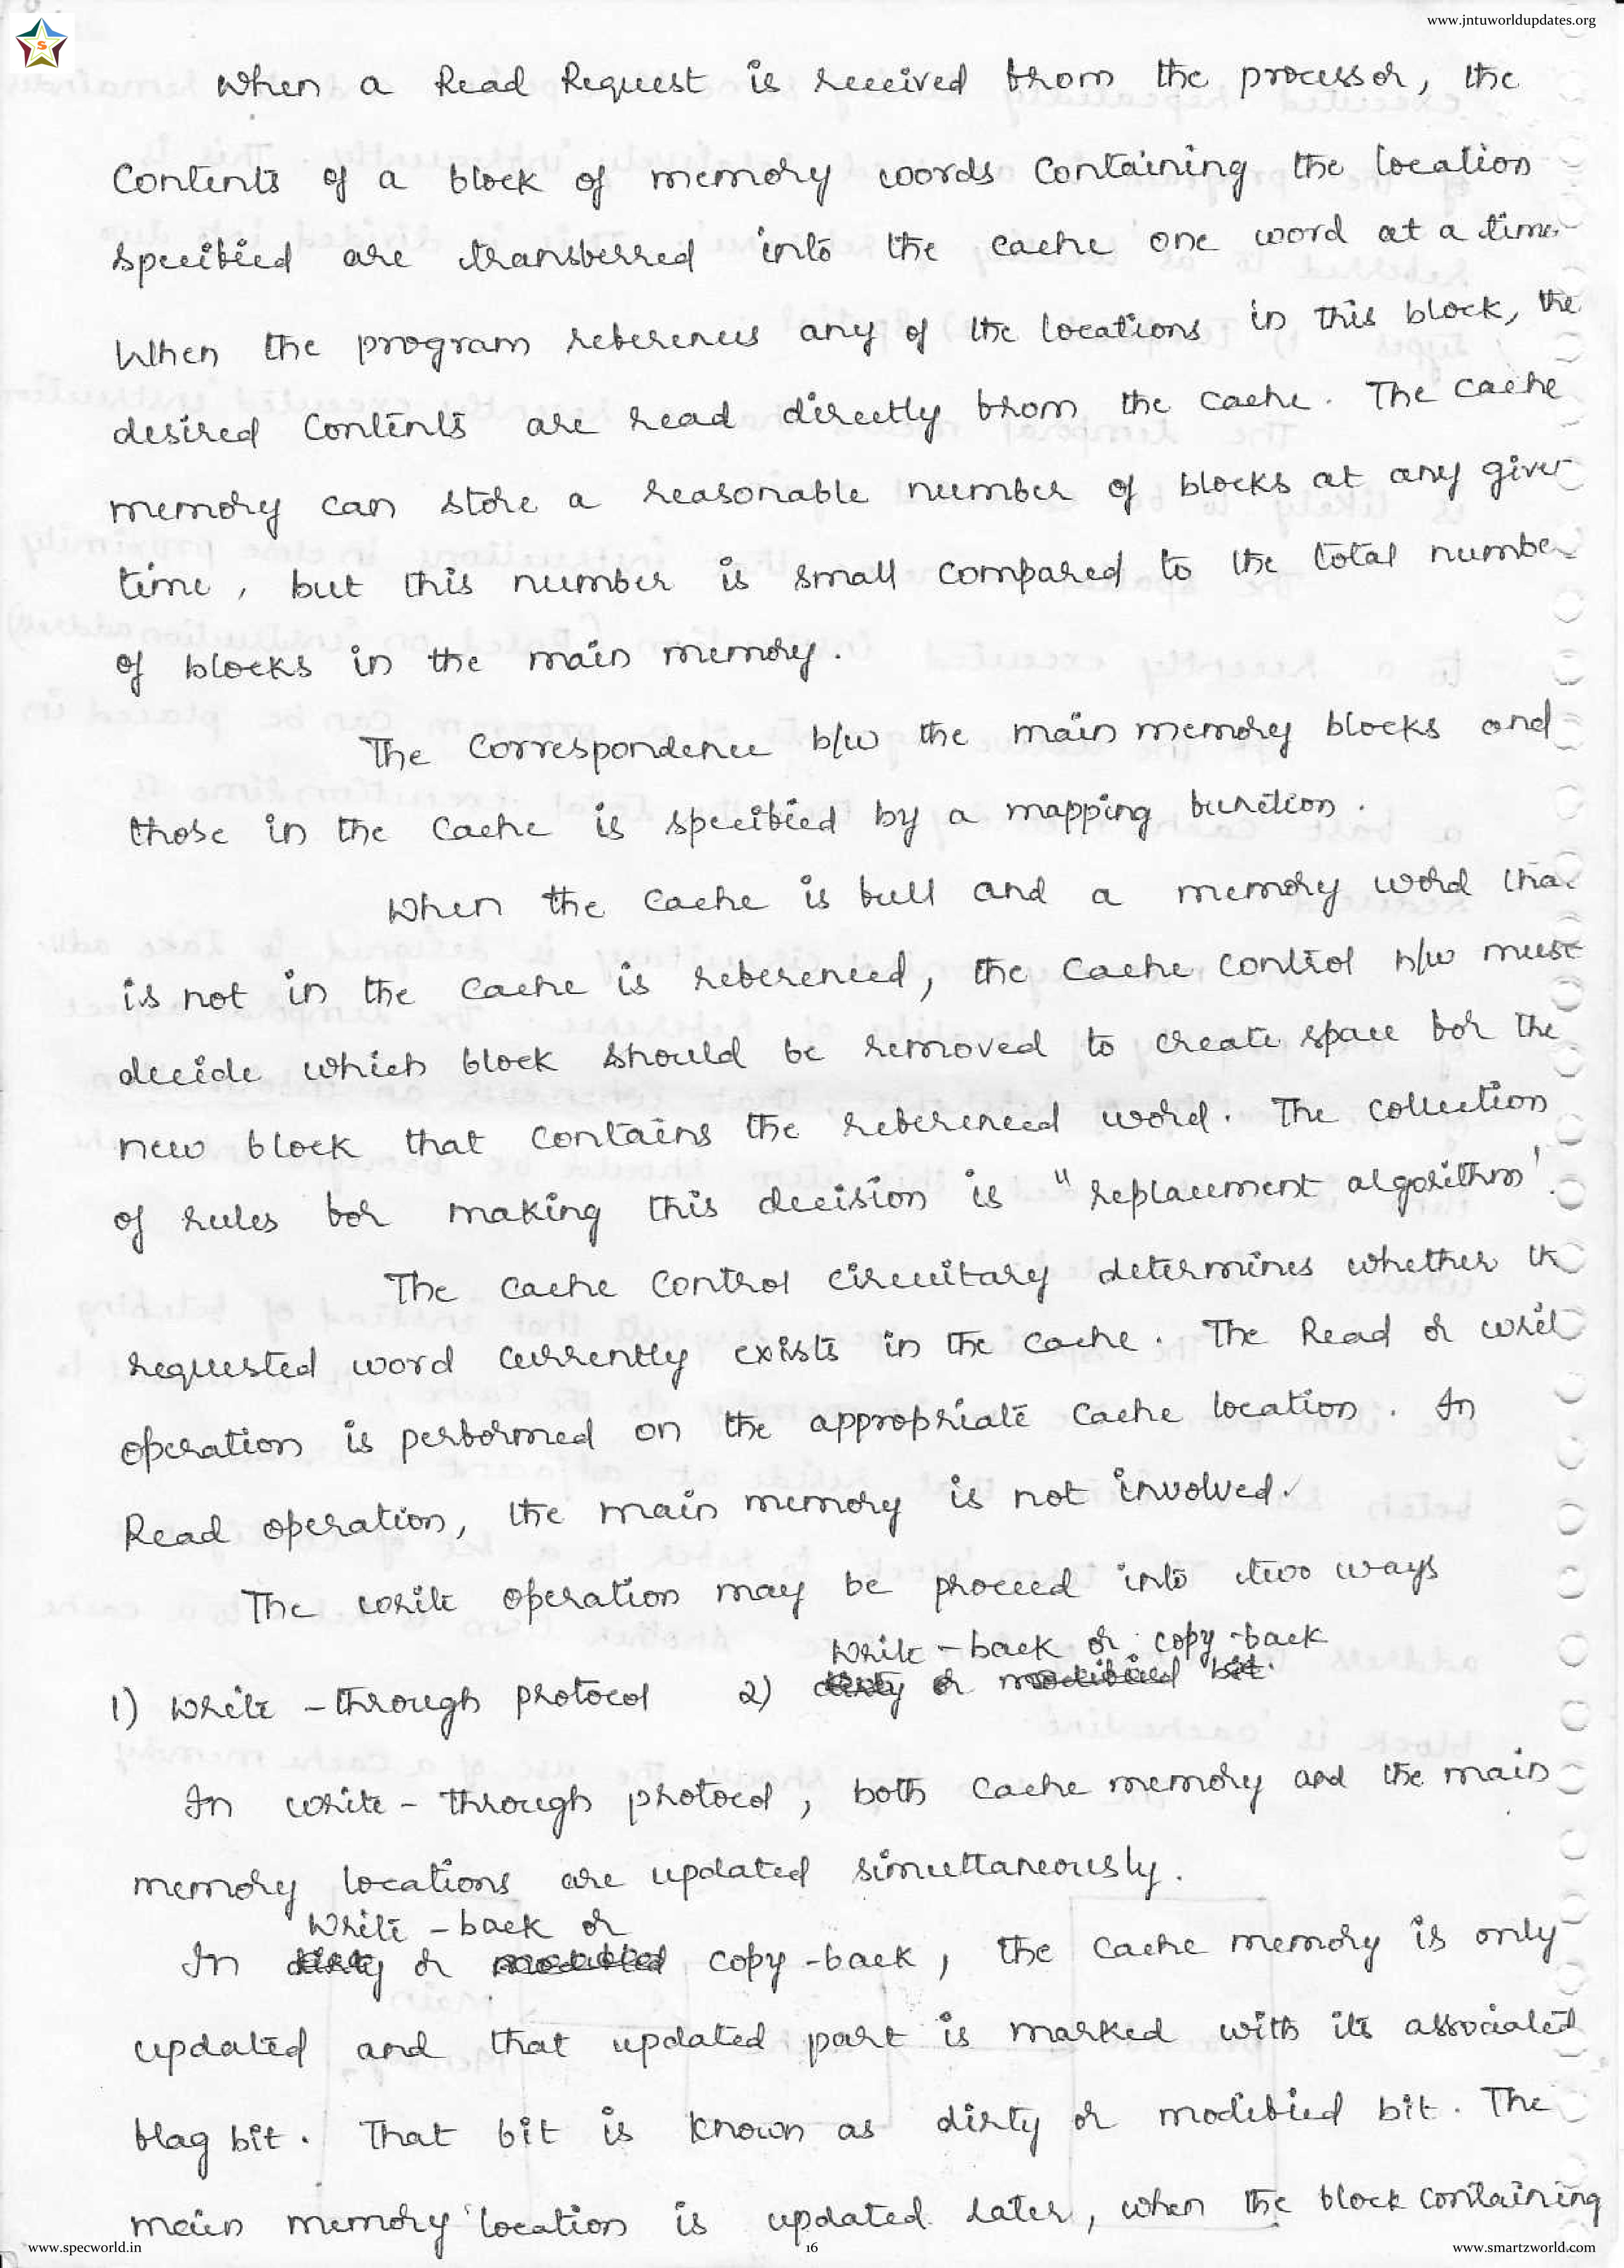 www.jntuworldupdates.org
S
When a Read Request is received from the processor, the
Contents of a block of memory words containing the location
specified are transferred into the cache one word at a time.
When the program references any of the locations in this block, the
desired contents are read directly from the cache. The cache
memory can store a reasonable number of blocks at any given
time, but this number is small compared to the total number
of blocks in the main memory.
The correspondence b/w the main memory blocks and
those in the cache is specified by a mapping function.
When the cache is full and a memory word that
is not in the cache is referenced, the cache control h/w must
decide which block should be removed to create space for the
new block that contains the referenced word. The collection
of rules for making this decision is "replacement algorithm'.
The cache control circuitary determines whether the
requested word currently exists in the cache. The Read or write
operation is performed on the appropriate cache location. In
Read operation, the main memory is not involved.
The write operation may be proceed into two ways
Write-back or copy-back
1) Write-through protocol 2) dirty or modified bit.
In write-through protocol, both cache memory and the main
memory locations are updated simultaneously.
Write-back or
In dirty or modified copy-back, the cache memory is only
updated and that updated part is marked with its associated
flag bit. That bit is known as dirty or modified bit. The
main memory location is updated later, when the block containing
www.specworld.in
16
www.smartzworld.com